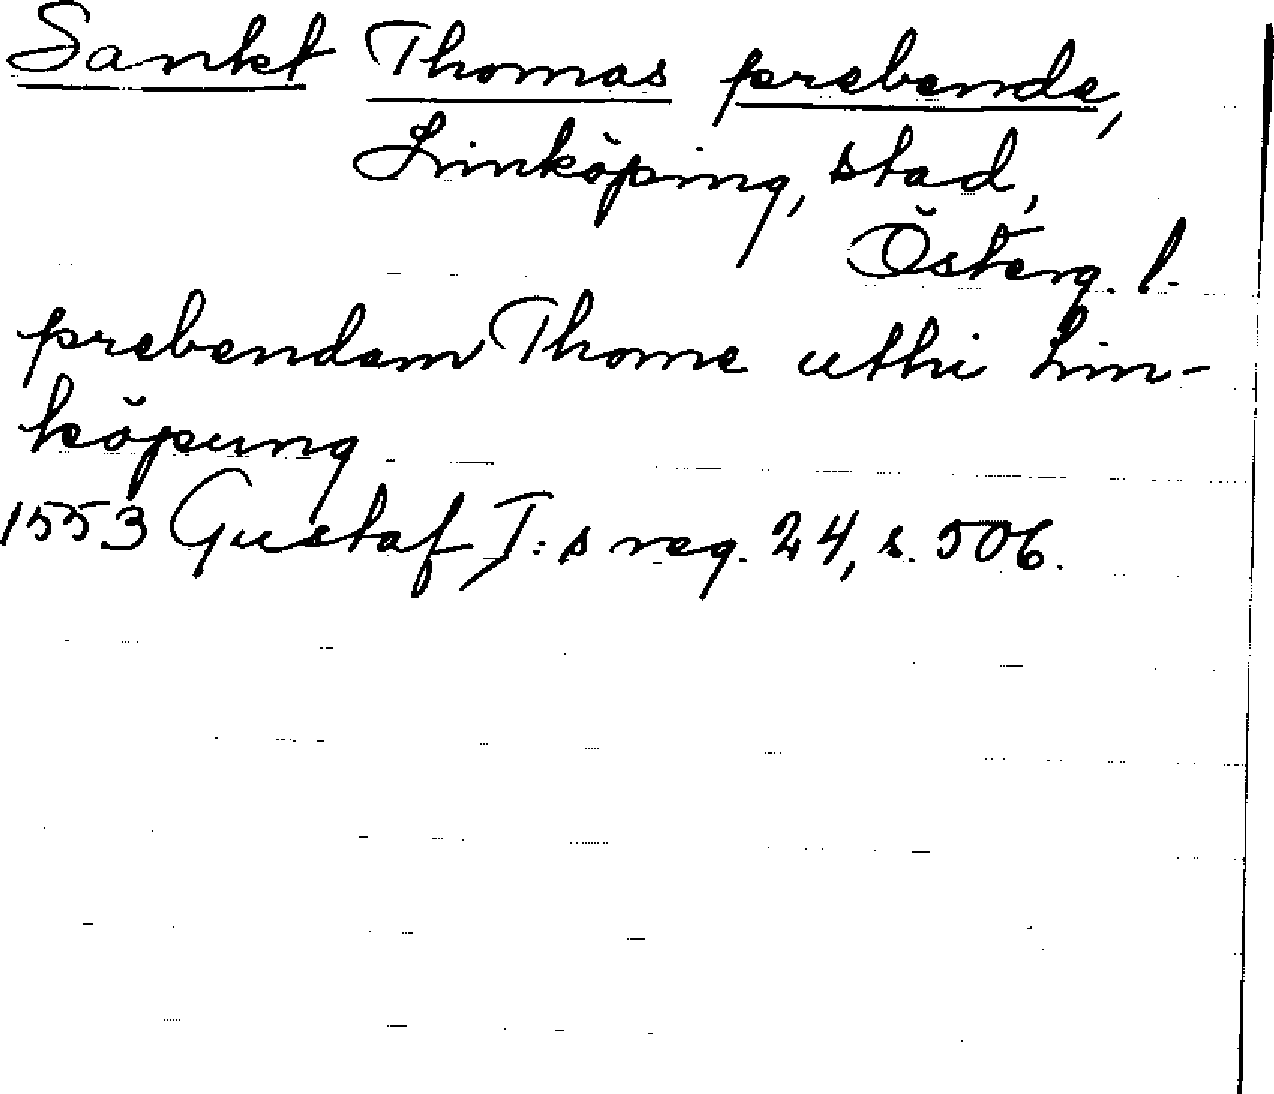 Sankt Thomas prebende,
Linköping, stad,
Österg. l.
prebendam Thome uthi Lin-
köpung
1553 Gustaf I:s reg. 24, s. 506.